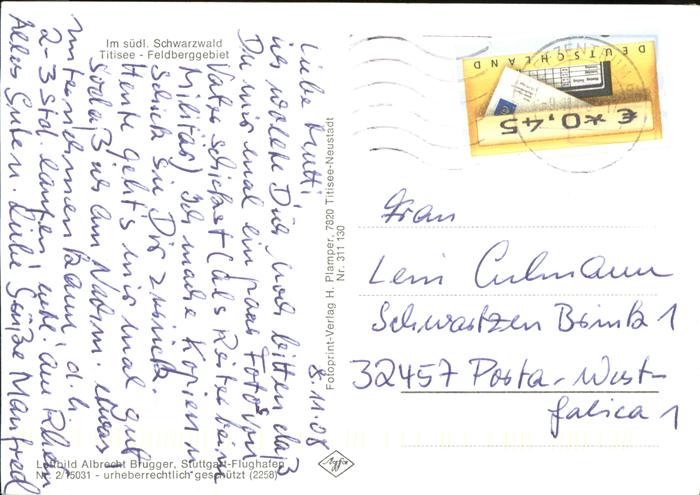 Im südl. Schwarzwald
Titisee - Feldberggebiet
8.11.08
Liebe Mutti!
ich wollte Dich noch bitten daß
Du mir mal ein paar Fotos von
Vater schickst (als Reiter beim
Militär) Ich mache Kopien u.
schick sie Dir zurück.
Heute geht's mir mal gut
sodaß ich am Nachm. etwas
unternehmen kann, d.h.
2-3 Std. laufen, am Rhein
Alles Gute u. Liebe Grüße Manfred
Luftbild Albrecht Brugger, Stuttgart-Flughafen
Nr. 2/15031 - urheberrechtlich geschützt (2258)
Fotoprint-Verlag H. Plamper, 7820 Titisee-Neustadt
Nr. 311 130
Agfa
DEUTSCHLAND
€ *0,45
Frau
Leni Culmann
Schwartzen Brink 1
32457 Porta-West-
falica 1